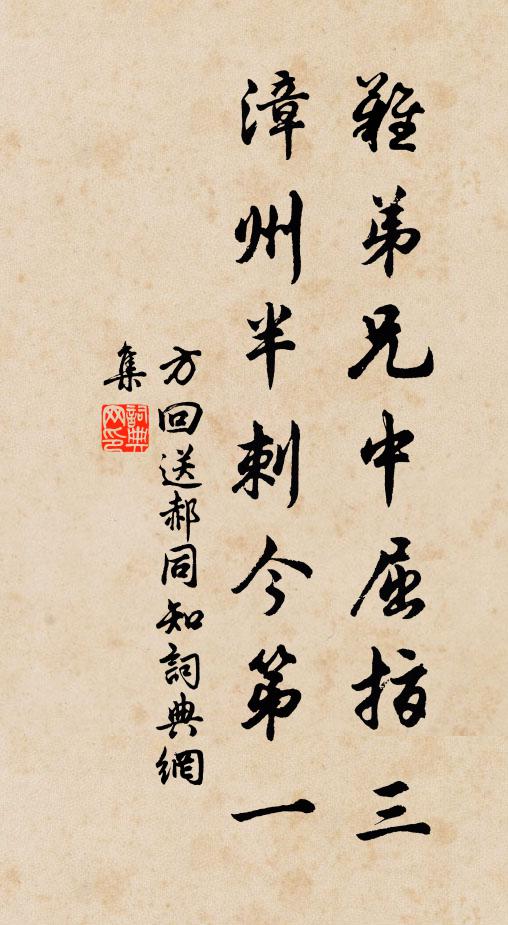 難弟兄中屈指三
漳州半刺今第一
方回送郝同知詞典網
集
詞典网印